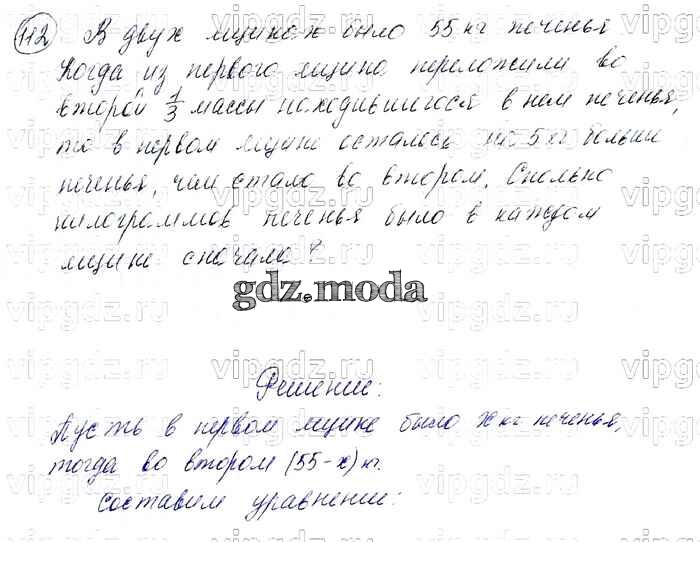 112 В двух ящиках было 55 кг печенья
Когда из первого ящика переложили во
второй 1/3 массы находившегося в нем печенья,
то в первом ящике осталось на 5 кг больше
печенья, чем стало во втором. Сколько
килограммов печенья было в каждом
ящике сначала?
gdz.moda
Решение:
Пусть в первом ящике было x кг печенья,
тогда во втором (55-x) кг.
Составим уравнение: